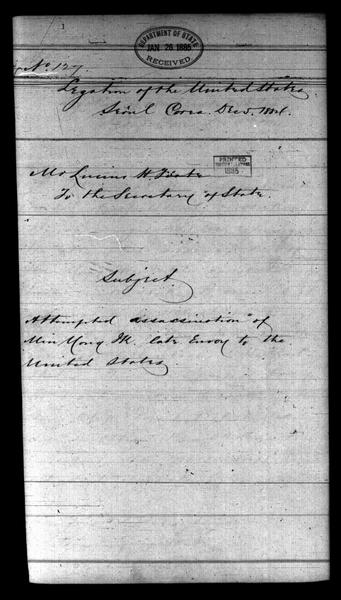 DEPARTMENT OF STATE
JAN. 26 1885
RECEIVED
No 127.
Legation of the United States
Seoul Corea. Dec.
Mr Lucius H. Foote
PRINTED
1885
To the Secretary of State.
Subject.
Attempted assassination of
Min Yong Ik. late Envoy to the
United States